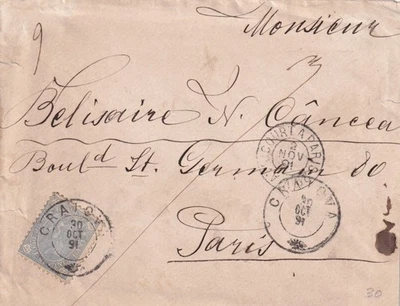 9
Monsieur
Belisaire N. Câncea
Boul.d St. Germain 80
Paris
2
NOV
91
CRAIOVA
30
OCT
91
CRAIOVA
30
OCT
91
30